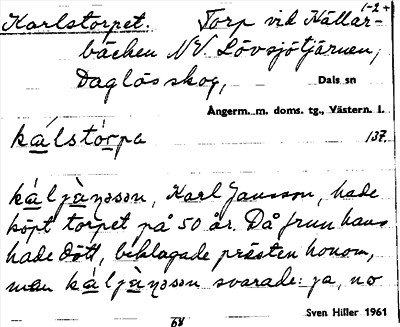 1-2+
Karlstorpet. Torp vid Källar-
bäcken NV Lövsjötjärnen,
Daglösskog, Dals sn
Ångerm. m. doms. tg., Västern. l.
kálstórpa 137.
káljàṇsson, Karl Jansson, hade
köpt torpet på 50 år. Då frun hans
hade dött, beklagade prästen honom,
men káljàṇsson svarade: ja, no
Sven Hiller 1961
68